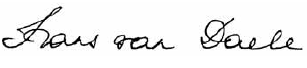 Frans van Daele